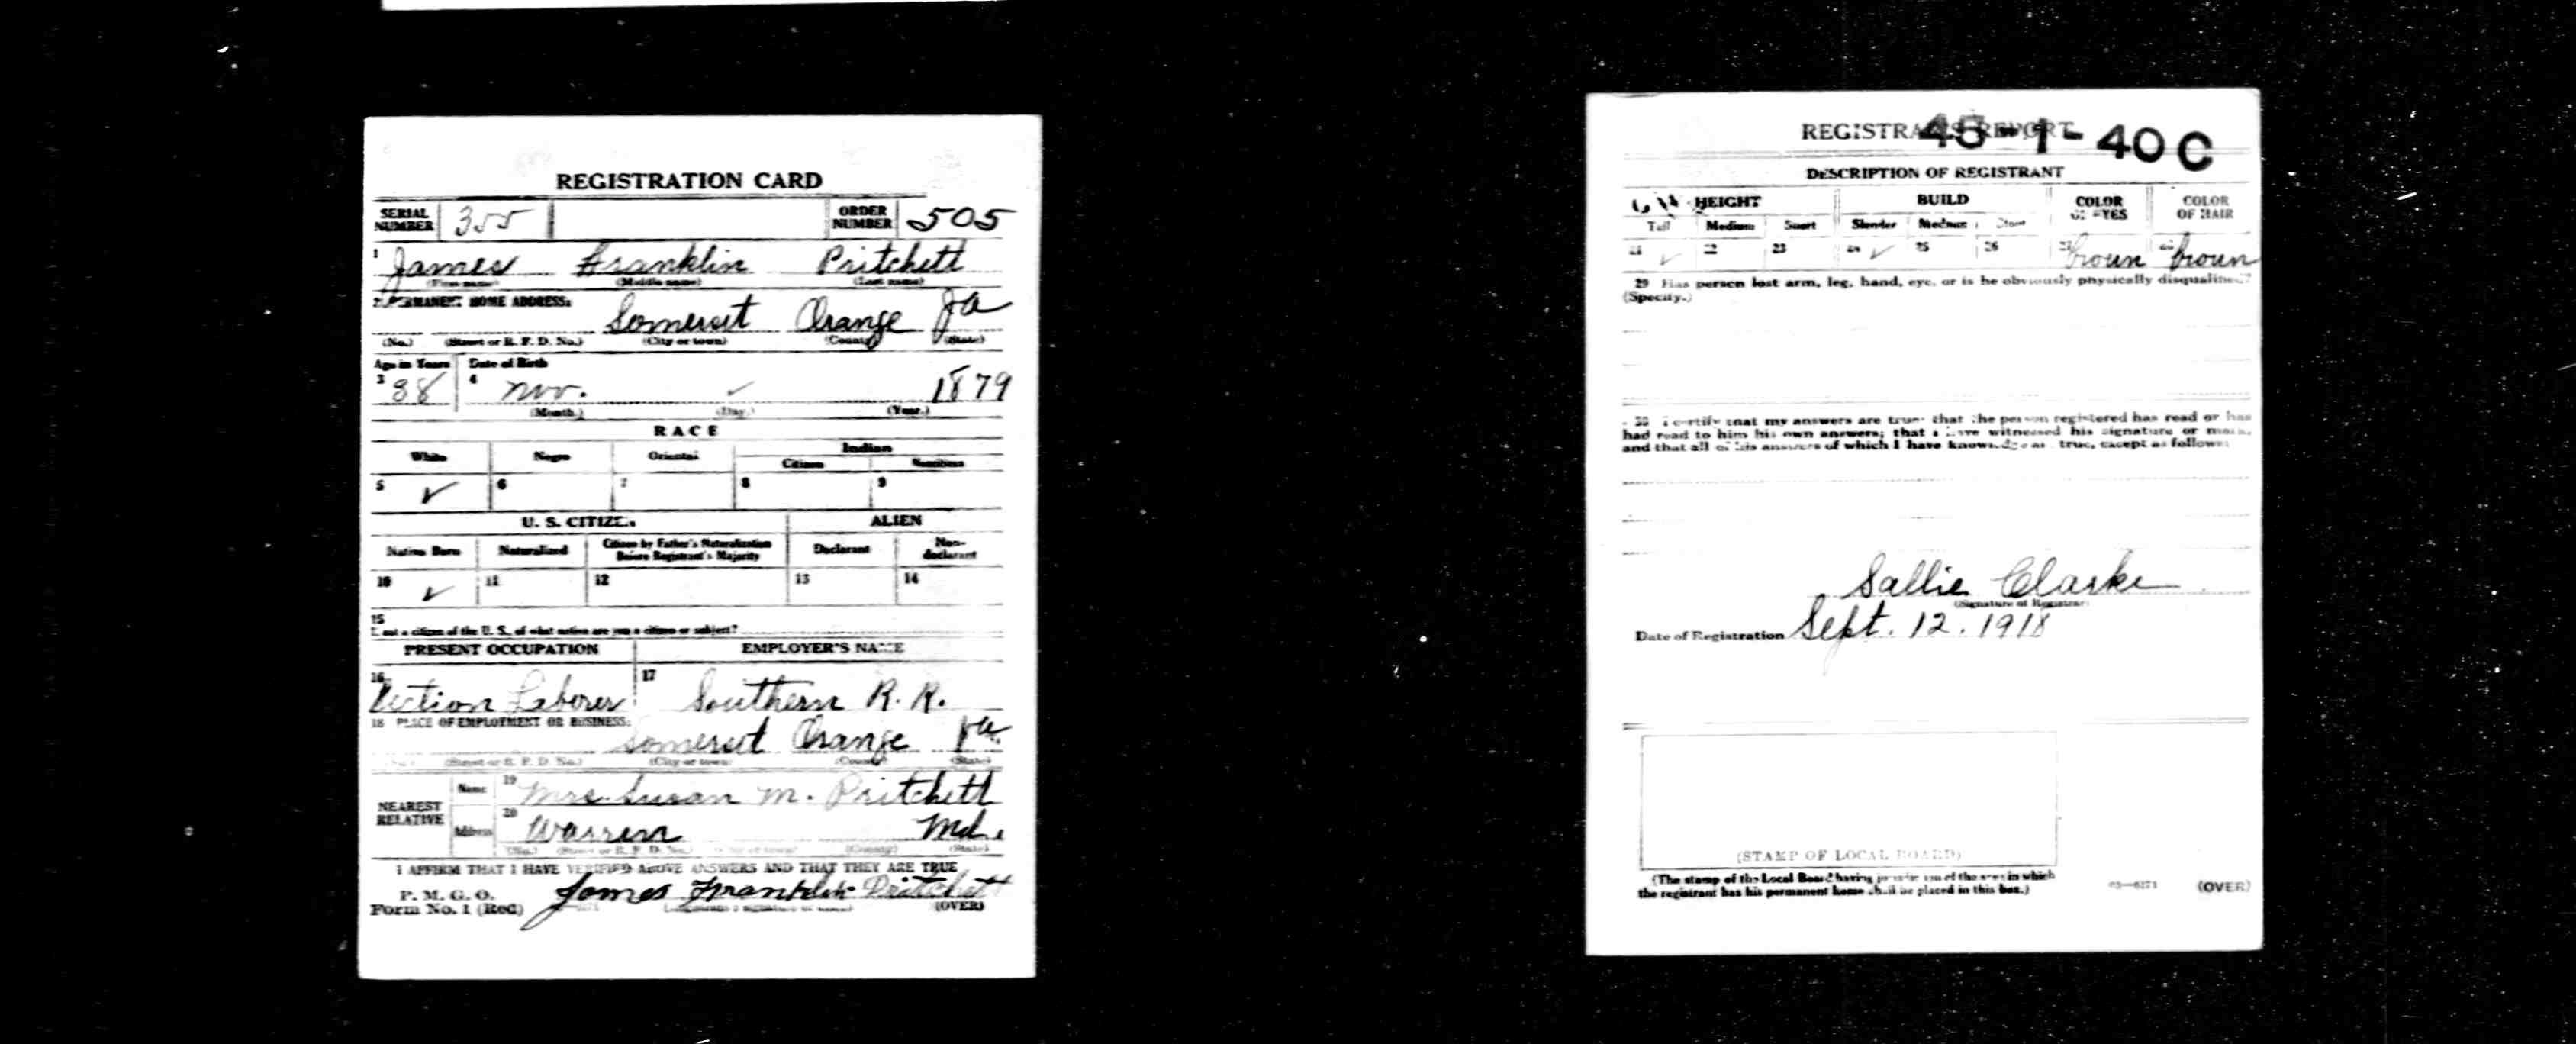 REGISTRATION CARD
SERIAL NUMBER 355 ORDER NUMBER 505
1 James Franklin Pritchett
(First name) (Middle name) (Last name)
2 PERMANENT HOME ADDRESS:
Somerset Orange Va
(No.) (Street or R. F. D. No.) (City or town) (County) (State)
Age in Years Date of Birth
3 38 4 Nov. 1879
(Month.) (Day.) (Year.)
RACE
White Negro Oriental Indian
Citizen Noncitizen
5 ✓ 6 7 8 9
U. S. CITIZEN ALIEN
Native Born Naturalized Citizen by Father's Naturalization Before Registrant's Majority Declarant Non-declarant
10 ✓ 11 12 13 14
15
If not a citizen of the U. S., of what nation are you a citizen or subject?
PRESENT OCCUPATION EMPLOYER'S NAME
16 Section Laborer 17 Southern R. R.
18 PLACE OF EMPLOYMENT OR BUSINESS:
Somerset Orange Va.
(No.) (Street or R. F. D. No.) (City or town) (County) (State)
NEAREST RELATIVE Name 19 Mrs. Susan M. Pritchett
Address 20 Warren Md.
(No.) (Street or R. F. D. No.) (City or town) (County) (State)
I AFFIRM THAT I HAVE VERIFIED ABOVE ANSWERS AND THAT THEY ARE TRUE
P. M. G. O.
Form No. 1 (Red) James Franklin Pritchett
(Registrant's signature or mark) (OVER)
REGISTRAR'S REPORT 45-1-40 C
DESCRIPTION OF REGISTRANT
HEIGHT BUILD COLOR OF EYES COLOR OF HAIR
Tall Medium Short Slender Medium Stout
21 ✓ 22 23 24 ✓ 25 26 27 broun 28 broun
29 Has person lost arm, leg, hand, eye, or is he obviously physically disqualified?
(Specify.)
30 I certify that my answers are true; that the person registered has read or has
had read to him his own answers; that I have witnessed his signature or mark,
and that all of his answers of which I have knowledge are true, except as follows:
Sallie Clarke
(Signature of Registrar)
Date of Registration Sept. 12. 1918
(STAMP OF LOCAL BOARD)
(The stamp of the Local Board having jurisdiction of the area in which
the registrant has his permanent home shall be placed in this box.)
03—6171 (OVER)